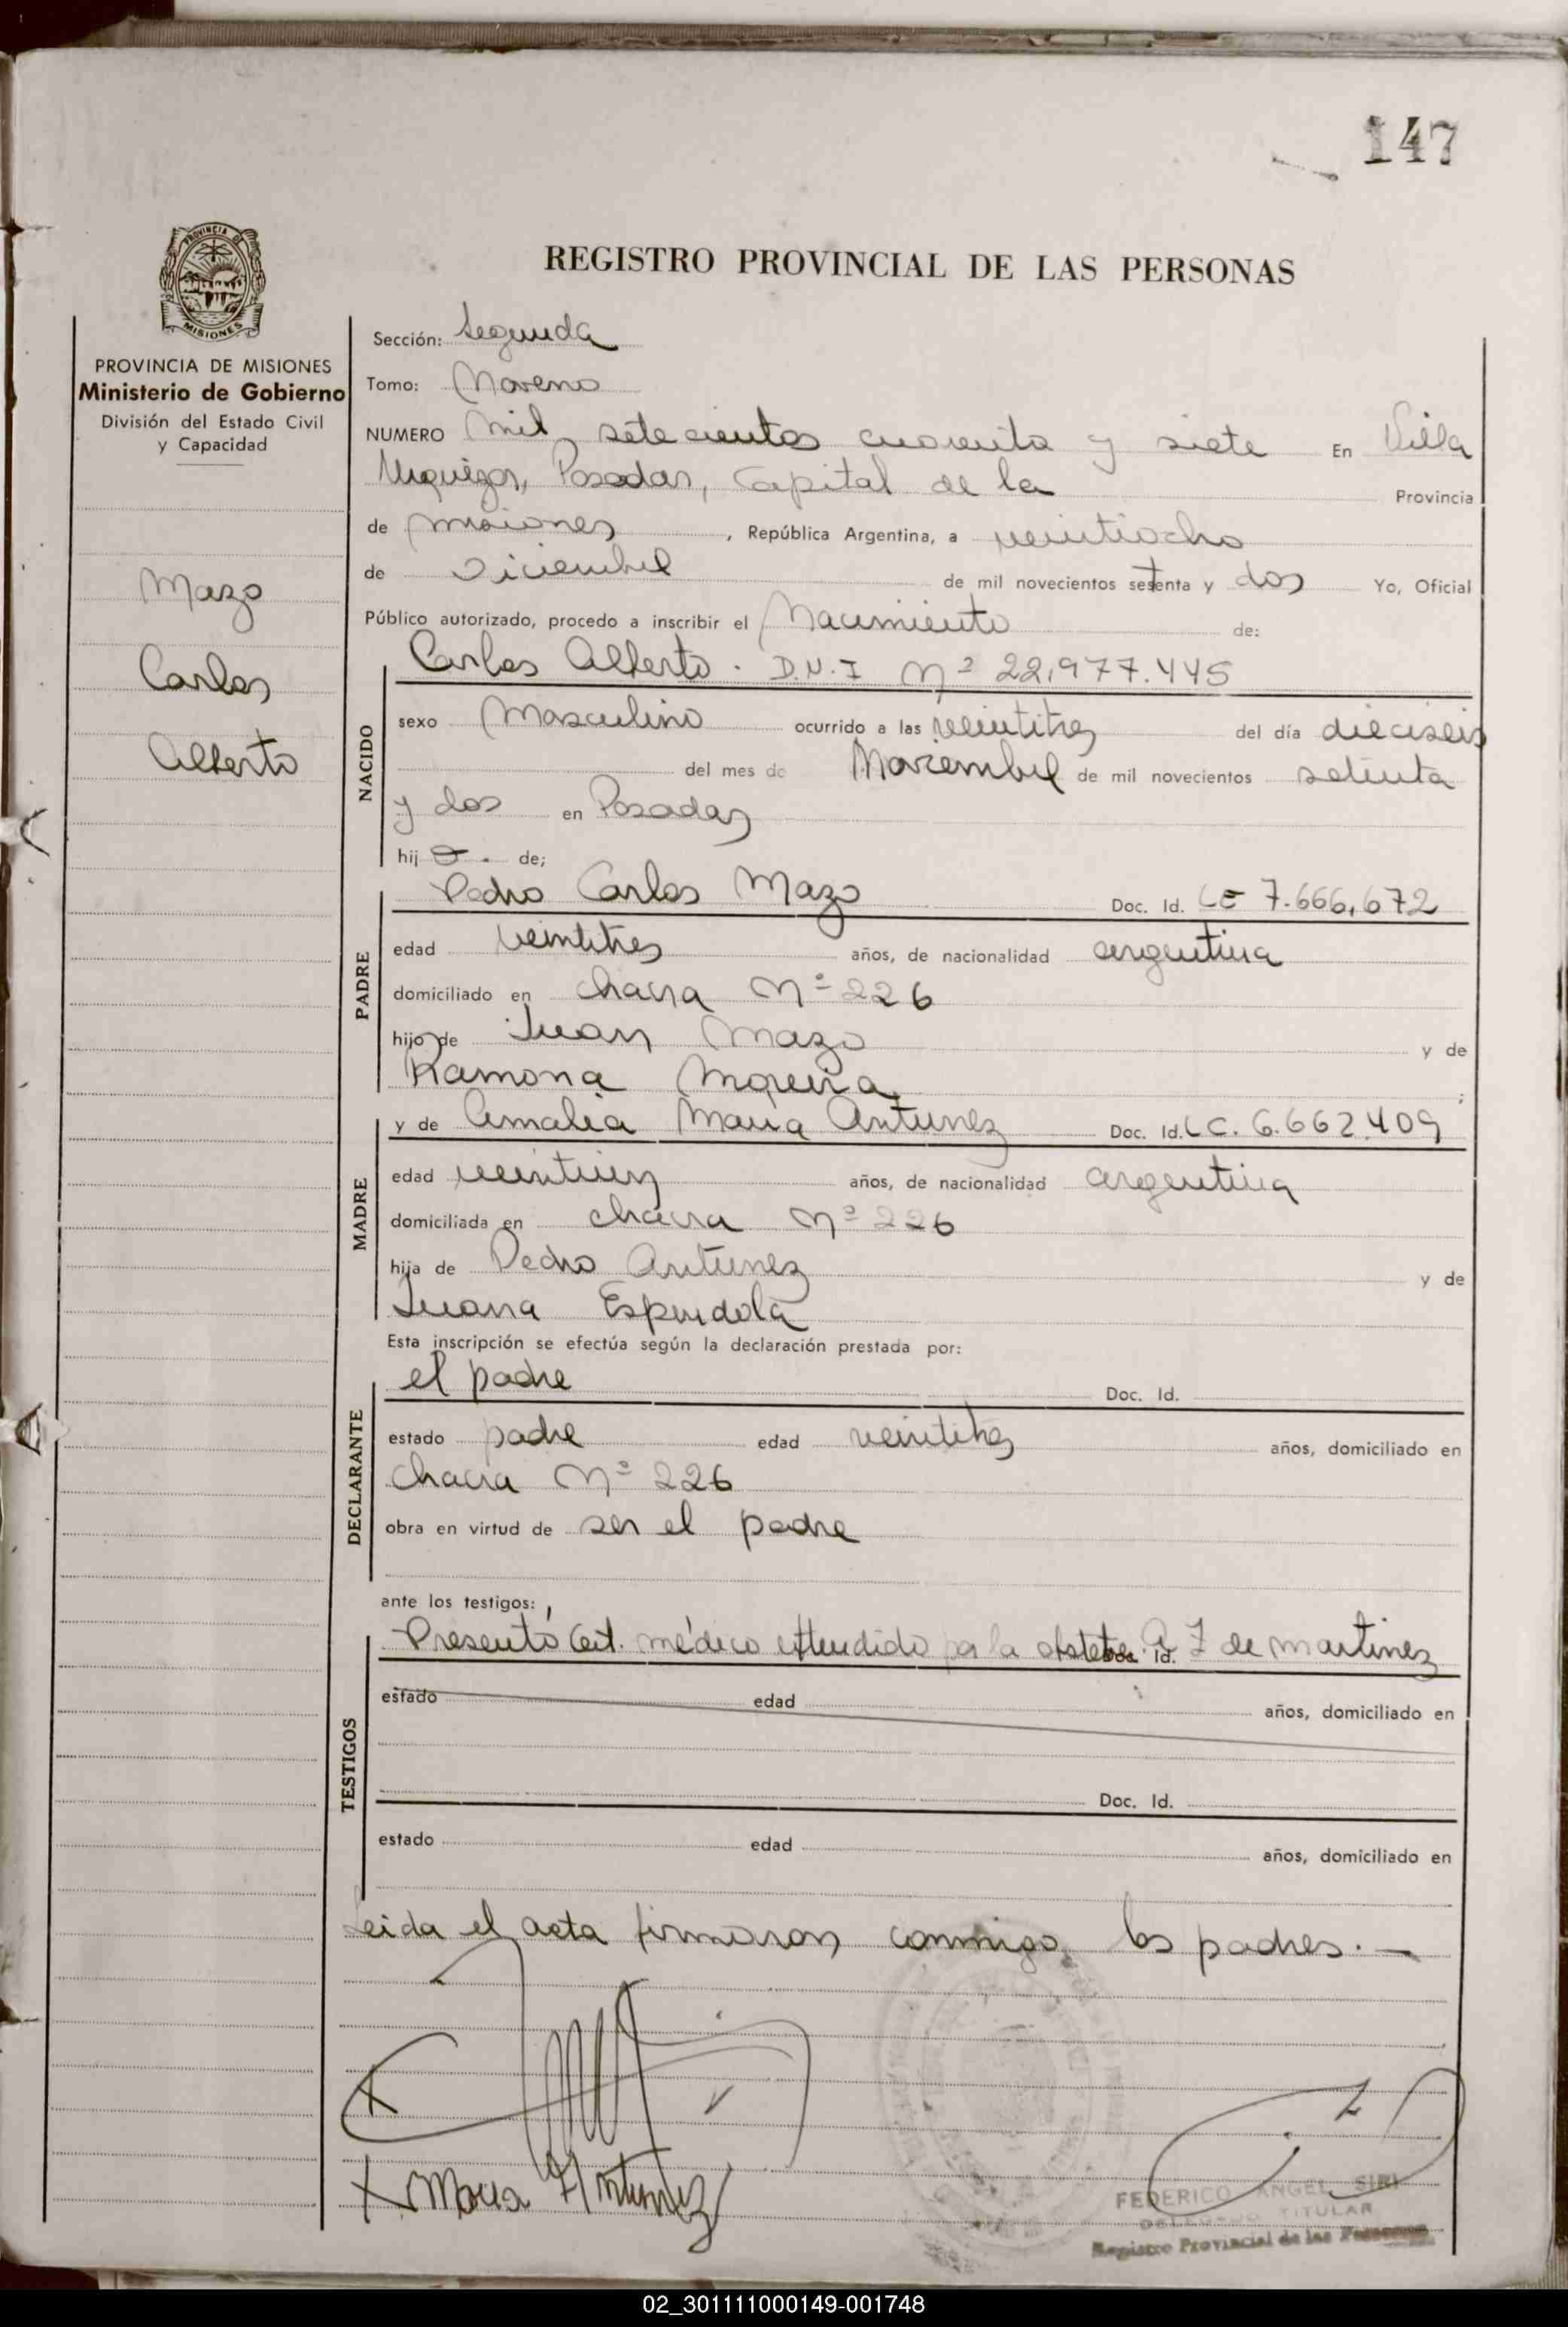 147
REGISTRO PROVINCIAL DE LAS PERSONAS
PROVINCIA DE
MISIONES
PROVINCIA DE MISIONES
Ministerio de Gobierno
División del Estado Civil
y Capacidad
Mazo
Carlos
Alberto
Sección: Segunda
Tomo: Noveno
NUMERO Mil setecientos cuarenta y siete En Villa
Urquiza, Posadas, Capital de la Provincia
de Misiones, República Argentina, a veintiocho
de Diciembre de mil novecientos setenta y dos Yo, Oficial
Público autorizado, procedo a inscribir el Nacimiento de:
Carlos Alberto. D.N.I Nº 22.977.445
NACIDO
sexo Masculino ocurrido a las veintitres del día dieciseis
del mes de Noviembre de mil novecientos setenta
y dos en Posadas
hijo. de;
Pedro Carlos Mazo Doc. Id. LE 7.666.672
PADRE
edad veintitres años, de nacionalidad argentina
domiciliado en chacra Nº 226
hijo de Juan Mazo y de
Ramona Moreira ;
y de Amalia Maria Antunez Doc. Id. LC. 6.662.409
MADRE
edad veintiun años, de nacionalidad argentina
domiciliada en chacra Nº 226
hija de Pedro Antunez y de
Juana Espindola
Esta inscripción se efectúa según la declaración prestada por:
el padre Doc. Id.
DECLARANTE
estado padre edad veintitres años, domiciliado en
chacra Nº 226
obra en virtud de ser el padre
ante los testigos:
Presentó Cert. médico extendido por la Doc. Id. de Martinez
TESTIGOS
estado edad años, domiciliado en
Doc. Id.
estado edad años, domiciliado en
Leida el acta firmaron conmigo, los padres. —
X
X Maria Antunez
FEDERICO ANGEL SIRI
DELEGADO TITULAR
Registro Provincial de las Personas
02_301111000149-001748